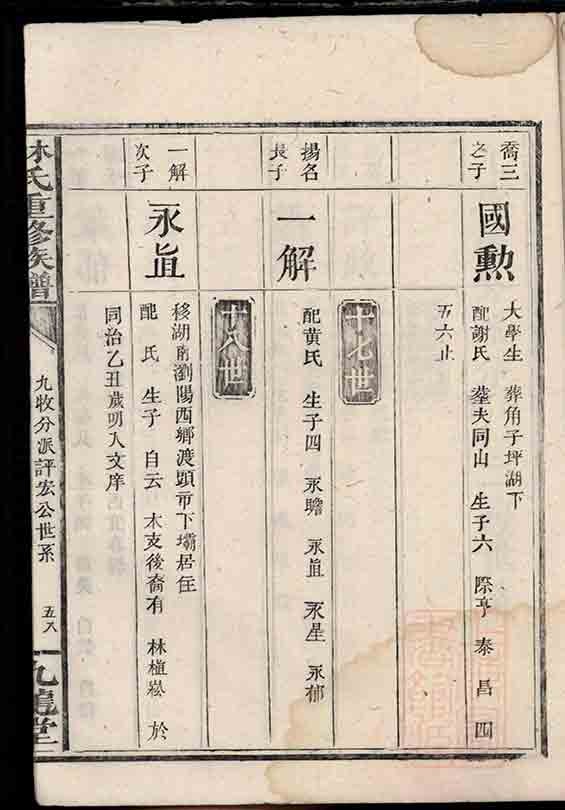 喬三
之子
國勲
大學生 葬角子坪湖下
配謝氏 葬夫同山 生子六 際亨 泰 昌 四
五六止
十七世
揚名
長子
一解
配黄氏 生子四 永瞻 永眞 永星 永郁
十八世
一解
次子
永眞
移湖南瀏陽西鄉渡頭市下壩居住
配 氏 生子 自云 本支後裔有 林植崧 於
同治乙丑歲明入文庠
林氏重修族譜
九牧分派評宏公世系
五八
九龍堂